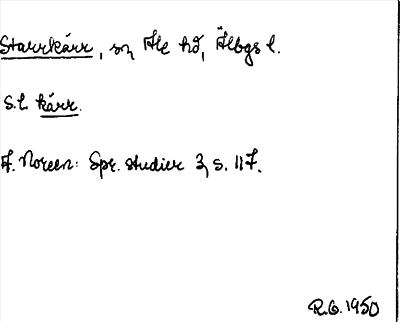 Starrkärr, sn Ale hd, Älvbgs l.
S.l. kärr.
A. Noreen: Spr. studier 3, s. 117.
R.G. 1950